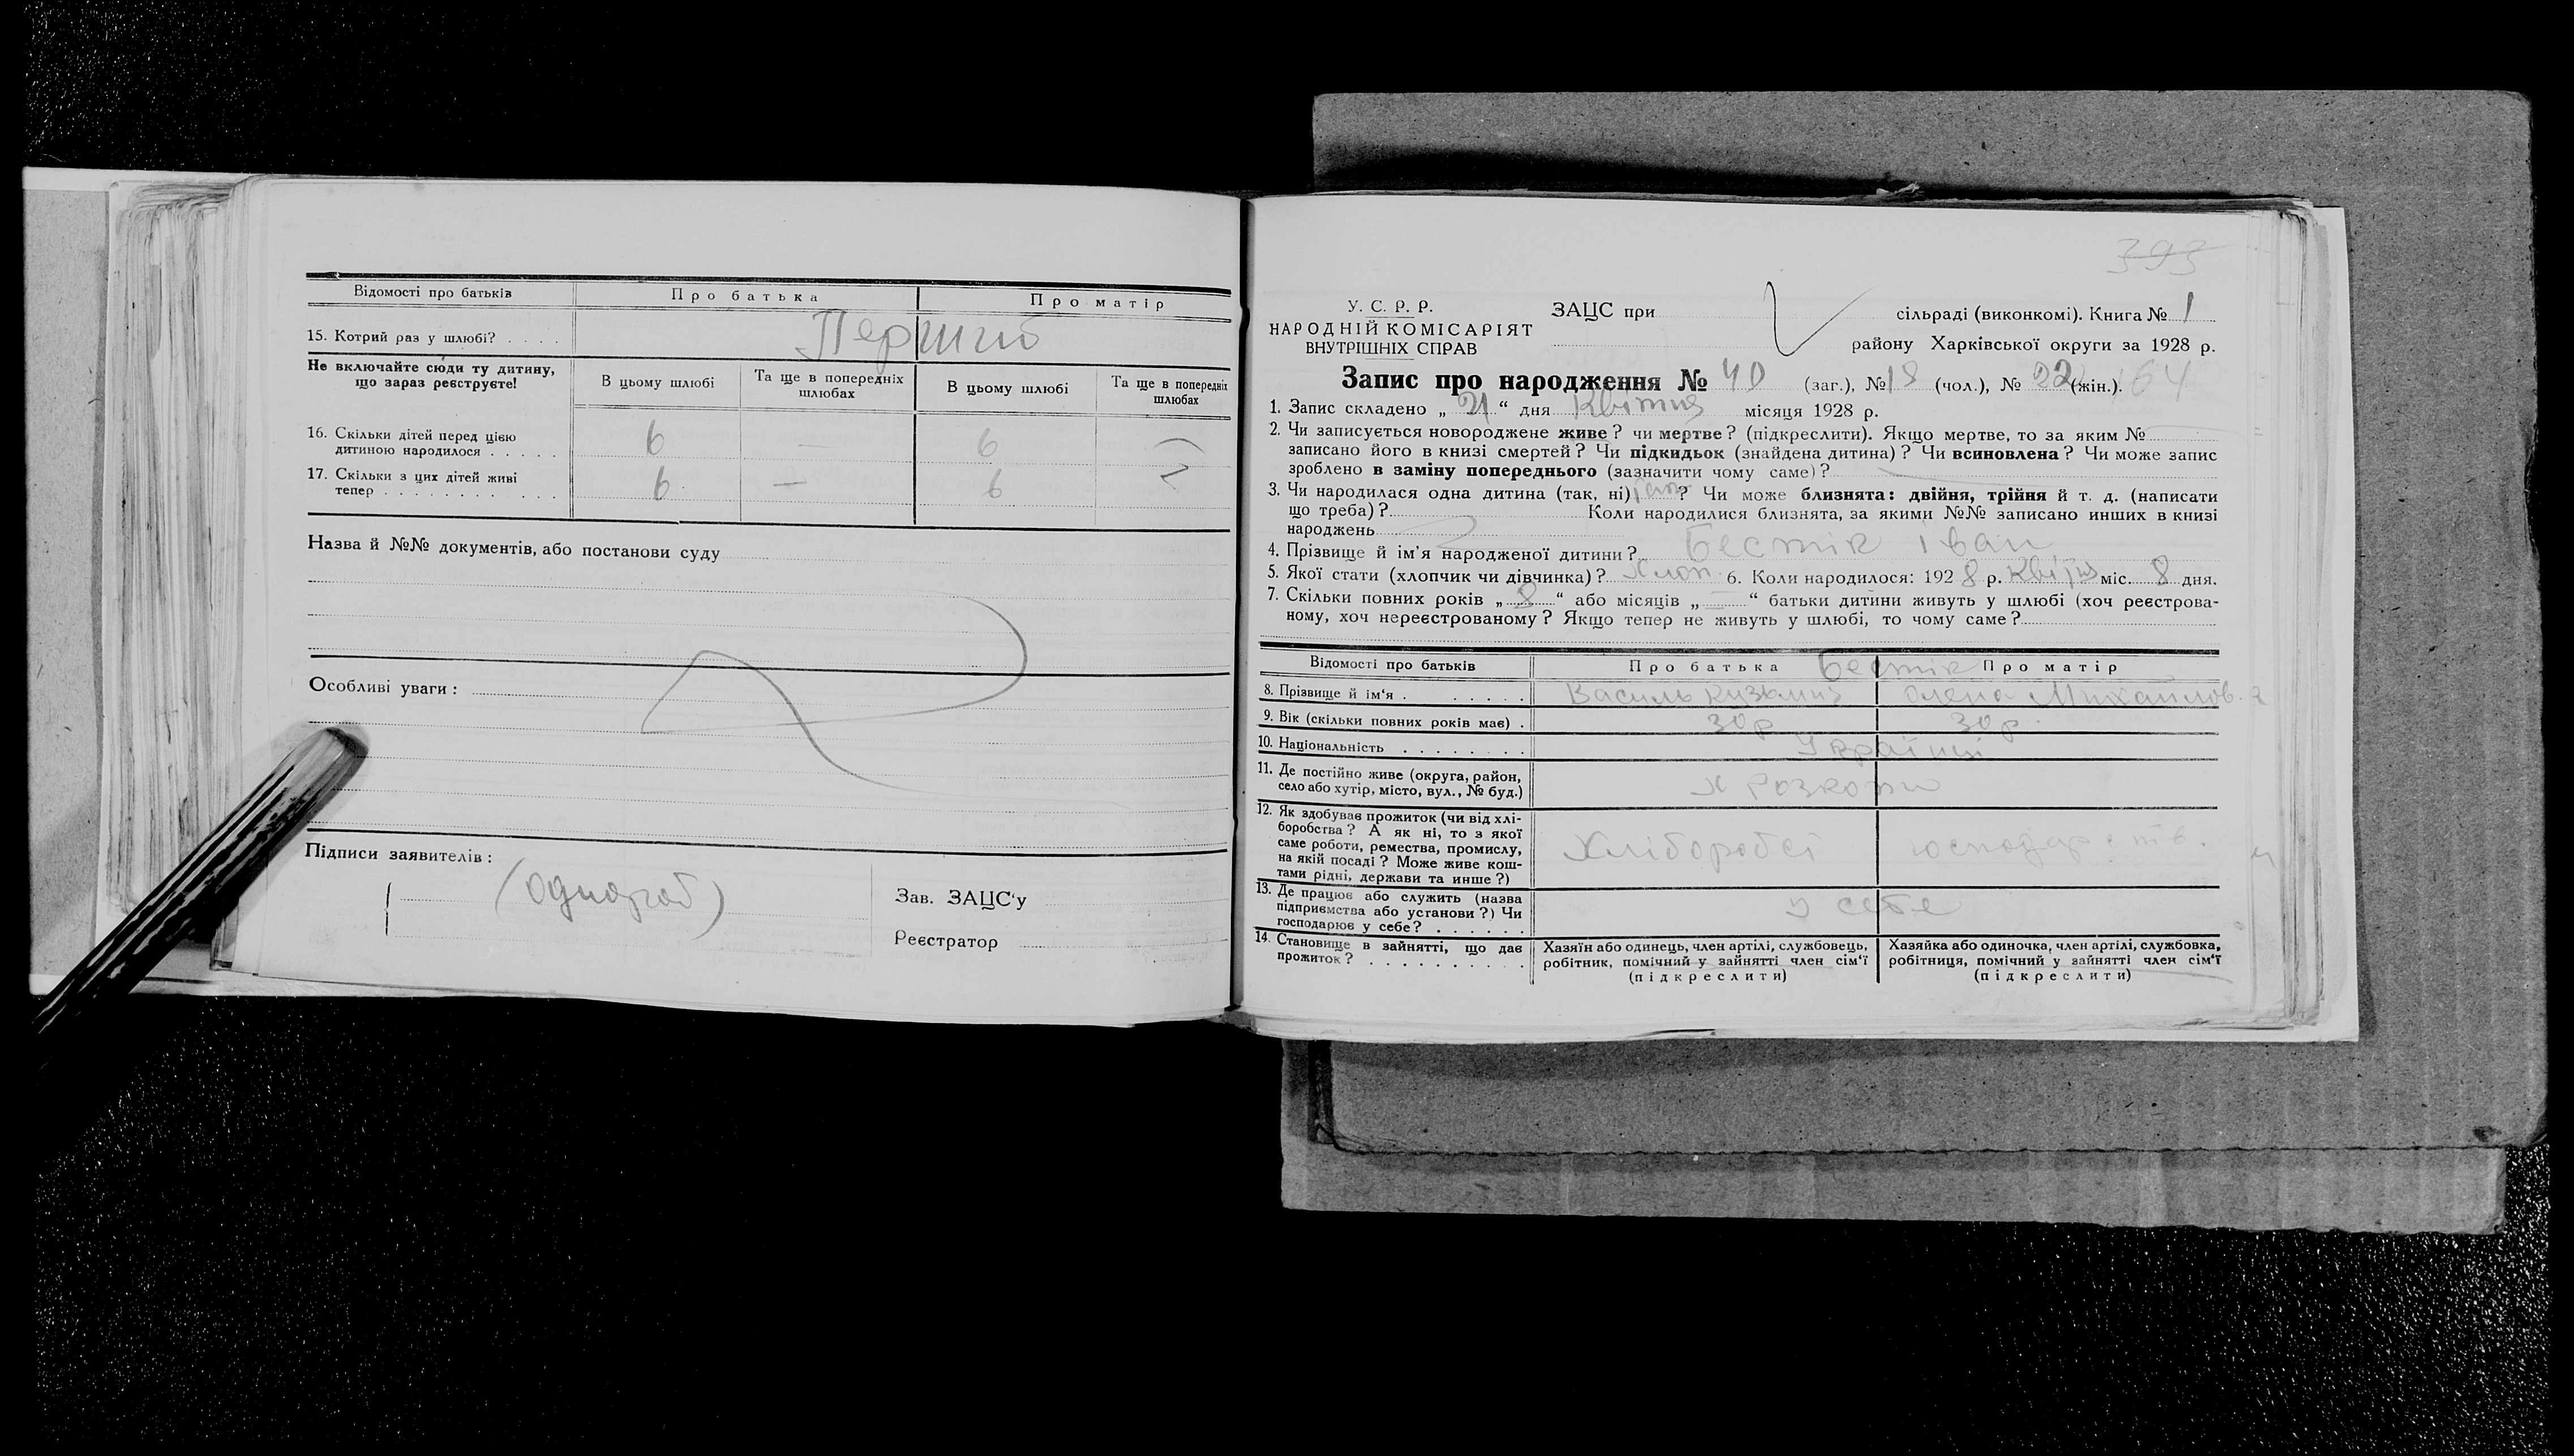 Відомості про батьків Про батька Про матір
15. Котрий раз у шлюбі? . . . . Перший
Не включайте сюди ту дитину, що зараз реєструєте!
В цьому шлюбі Та ще в попередніх шлюбах В цьому шлюбі Та ще в попередніх шлюбах
16. Скільки дітей перед цією
дитиною народилося . . . . . 6 — 6
17. Скільки з цих дітей живі
тепер . . . . . . . . . . . . 6 — 6
Назва й №№ документів, або постанови суду
Особливі уваги :
Підписи заявителів :
Зав. ЗАЦС'у
Реєстратор
393
У. С. Р. Р.
НАРОДНІЙ КОМІСАРІЯТ
ВНУТРІШНІХ СПРАВ
ЗАЦС при сільраді (виконкомі). Книга № 1
району Харківської округи за 1928 р.
Запис про народження № 40 (заг.), № 18 (чол.), № 22 (жін.). 64
1. Запис складено „ 21 “ дня Квітня місяця 1928 р.
2. Чи записується новороджене живе? чи мертве? (підкреслити). Якщо мертве, то за яким №
записано його в книзі смертей? Чи підкидьок (знайдена дитина)? Чи всиновлена? Чи може запис
зроблено в заміну попереднього (зазначити чому саме)?
3. Чи народилася одна дитина (так, ні) так ? Чи може близнята: двійня, трійня й т. д. (написати
що треба)? Коли народилися близнята, за якими №№ записано инших в книзі
народжень
4. Прізвище й ім'я народженої дитини? Бестік Іван
5. Якої стати (хлопчик чи дівчинка)? Хлоп. 6. Коли народилося: 1928 р. Квітня міс. 8 дня.
7. Скільки повних років „ 8 “ або місяців „ — “ батьки дитини живуть у шлюбі (хоч реєстрова-
ному, хоч нереєстрованому? Якщо тепер не живуть у шлюбі, то чому саме?
Відомості про батьків Про батька Бестік Про матір
8. Прізвище й ім'я . . . . . . Василь Кузьмич Олена Михайлов.
9. Вік (скільки повних років має) . 30 р 30 р.
10. Національність . . . . . . . . Українці
11. Де постійно живе (округа, район,
село або хутір, місто, вул., № буд.) Х Розкопи
12. Як здобував прожиток (чи від хлі-
боробства? А як ні, то з якої
саме роботи, ремества, промислу,
на якій посаді? Може живе кош-
тами рідні, держави та инше?) Хліборобсі господарств.
13. Де працює або служить (назва
підприємства або установи?) Чи
господарює у себе? . . . . . . у себе
14. Становище в зайнятті, що дає
прожиток? . . . . . . . . . .
Хазяїн або одинець, член артілі, службовець,
робітник, помічний у зайнятті член сім'ї
(підкреслити)
Хазяйка або одиночка, член артілі, службовка,
робітниця, помічний у зайнятті член сім'ї
(підкреслити)